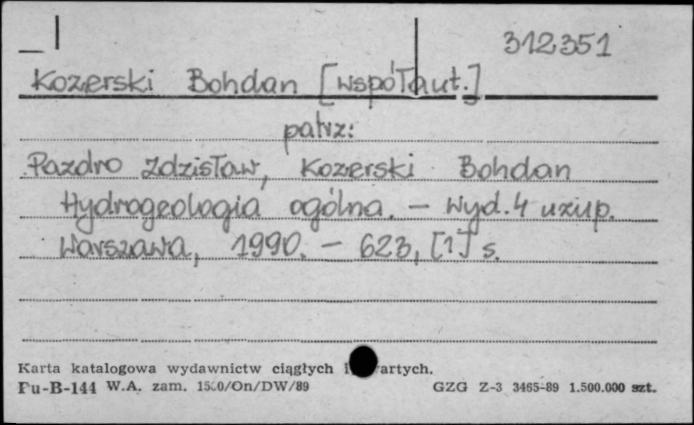 312351
Kozerski Bohdan [współaut.]
patrz:
Pazdro Zdzisław, Kozerski Bohdan
Hydrogeologia ogólna. — Wyd. 4 uzup.
Warszawa, 1990. — 623, [1] s.
Karta katalogowa wydawnictw ciągłych
Pu-B-144 W.A. zam. /On/DW/89 GZG Z-3 3465-89 1.500.000 szt.